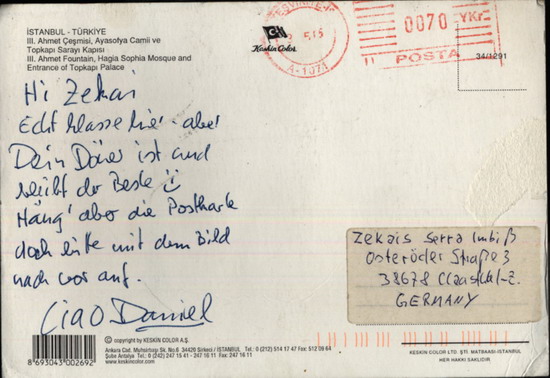 İSTANBUL - TÜRKİYE
III. Ahmet Çeşmisi, Ayasofya Camii ve
Topkapı Sarayı Kapısı
III. Ahmet Fountain, Hagia Sophia Mosque and
Entrance of Topkapı Palace
Keskin Color
0070 YKr
POSTA
34/1291
Hi Zekai
Echt klasse hier aber
Dein Döner ist und
bleibt der Beste
Häng' aber die Postkarte
doch bitte mit dem Bild
nach vor auf.
Ciao Daniel
Zekais Serra Imbiß
Osteröder Straße 3
38678 Clausthal-Z.
GERMANY
© copyright by KESKIN COLOR A.Ş.
Ankara Cad. Mühürdar Sk. No.6 34420 Sirkeci / İSTANBUL Tel: 0 (212) 514 17 47 Fax: 512 09 64
Şube Antalya Tel: 0 (242) 247 15 41 - 247 16 11 Fax: 247 16 11 www.keskincolor.com
8 693043 002692
KESKIN COLOR LTD. ŞTİ. MATBAASI-İSTANBUL
HER HAKKI SAKLIDIR